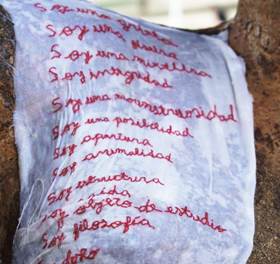 Soy una grieta
Soy una
Soy una mentira
Soy integridad
Soy una monstruosidad
Soy una posibilidad
Soy apertura
Soy anomalidad
Soy estructura
Soy caída
Soy objeto de estudio
Soy filosofía